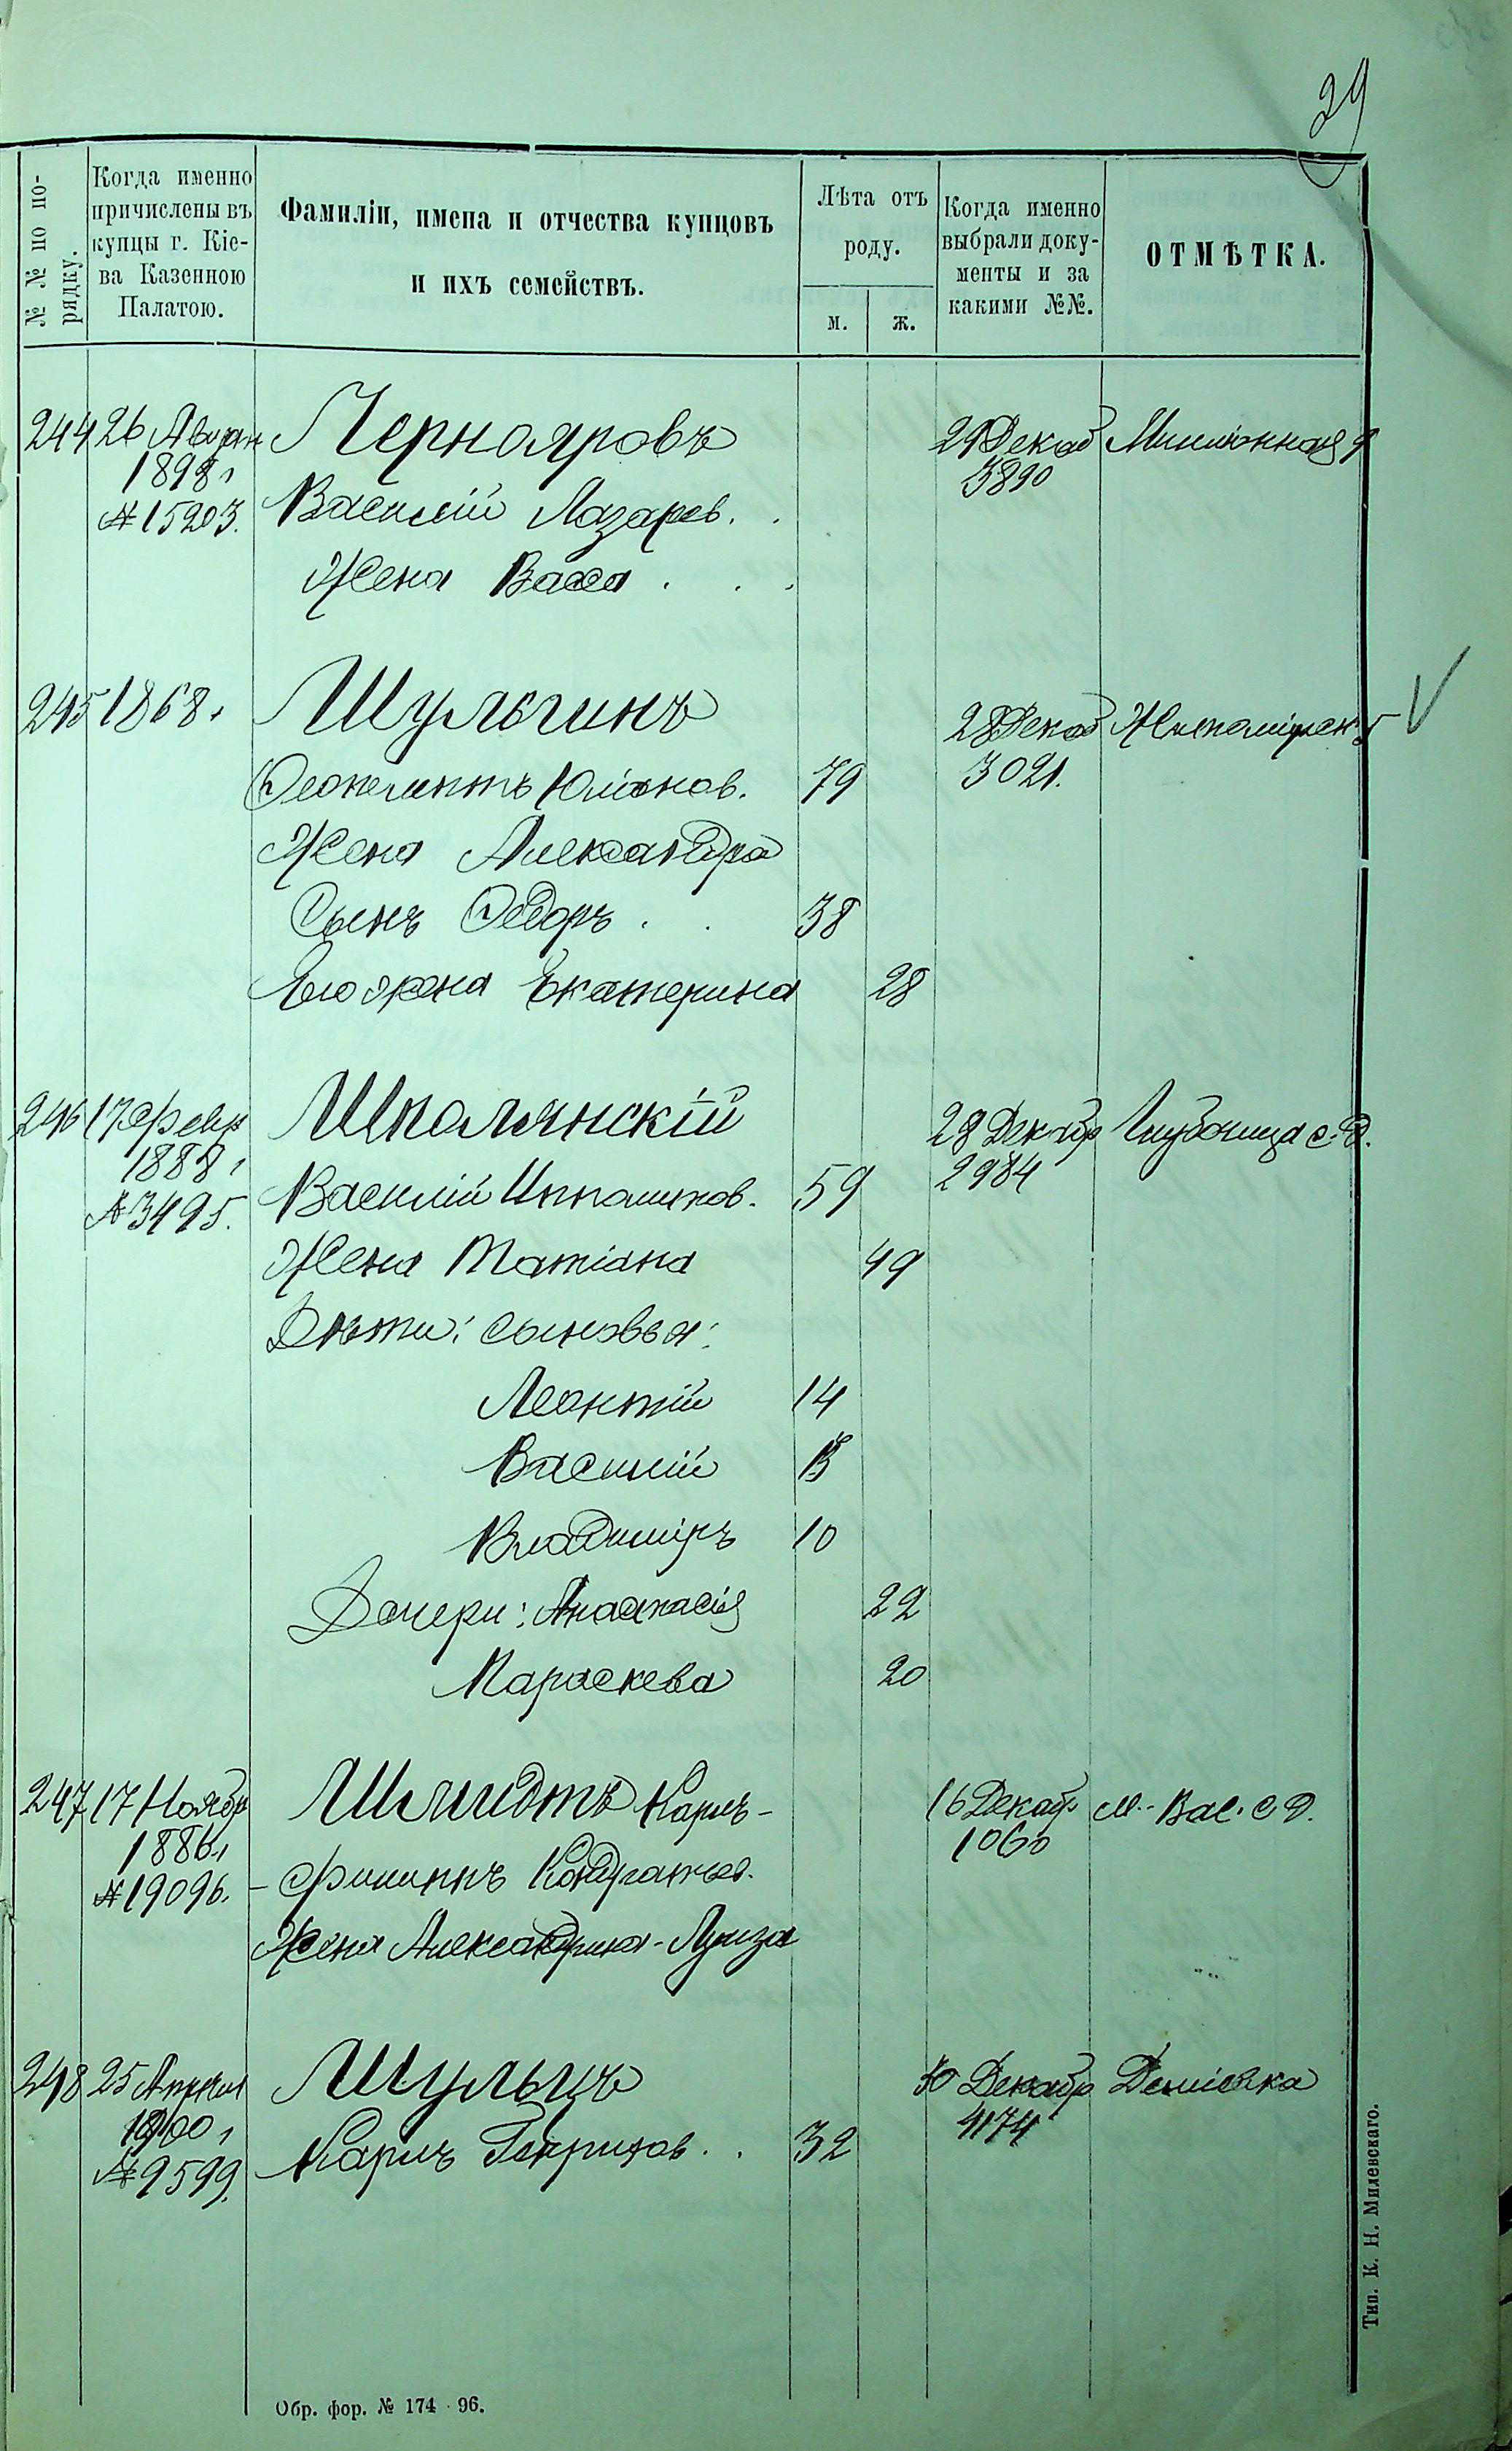 29
№ № по по-
рядку.
Когда именно
причислены въ
купцы г. Кіе-
ва Казенною
Палатою.
Фамиліи, имена и отчества купцовъ
и ихъ семействъ.
Лѣта отъ
роду.
м.
ж.
Когда именно
выбрали доку-
менты и за
какими №№.
ОТМѢТКА.
244 26 Чернояровъ 29 Декаб
1898 г 3890
№ 15203. Василій Лазарев.
Жена Васса
245 1868 г Шульгинъ 28 Декаб
Феопемптъ Юліанов. 79 3021.
Жена Александра
Сынъ Федоръ 38
Его жена Екатерина 28
246 17 Февр Шполянскій 28 Декабр Глубочица с. д.
1888 г 2984
№ 3495. Василій Ипполитов. 59
Жена Татіана 49
Дѣти: сыновья:
Леонтій 14
Василій
Владиміръ 10
Дочери: Анастасія 22
Параскева 20
247 17 Ноябр Шмидтъ Карлъ- 16 Декабр М.-Вас. с. д.
1886 г 1060
№ 19096. - Филиппъ Кондратьев.
Жена Александрина-Луиза
248 25 Апрѣля Шульцъ 30 Декабр Деміевка
1900 г 4174
№ 9599. Карлъ Генрихов. 32
Обр. фор. № 174 - 96.
Тип. К. Н. Милевскаго.